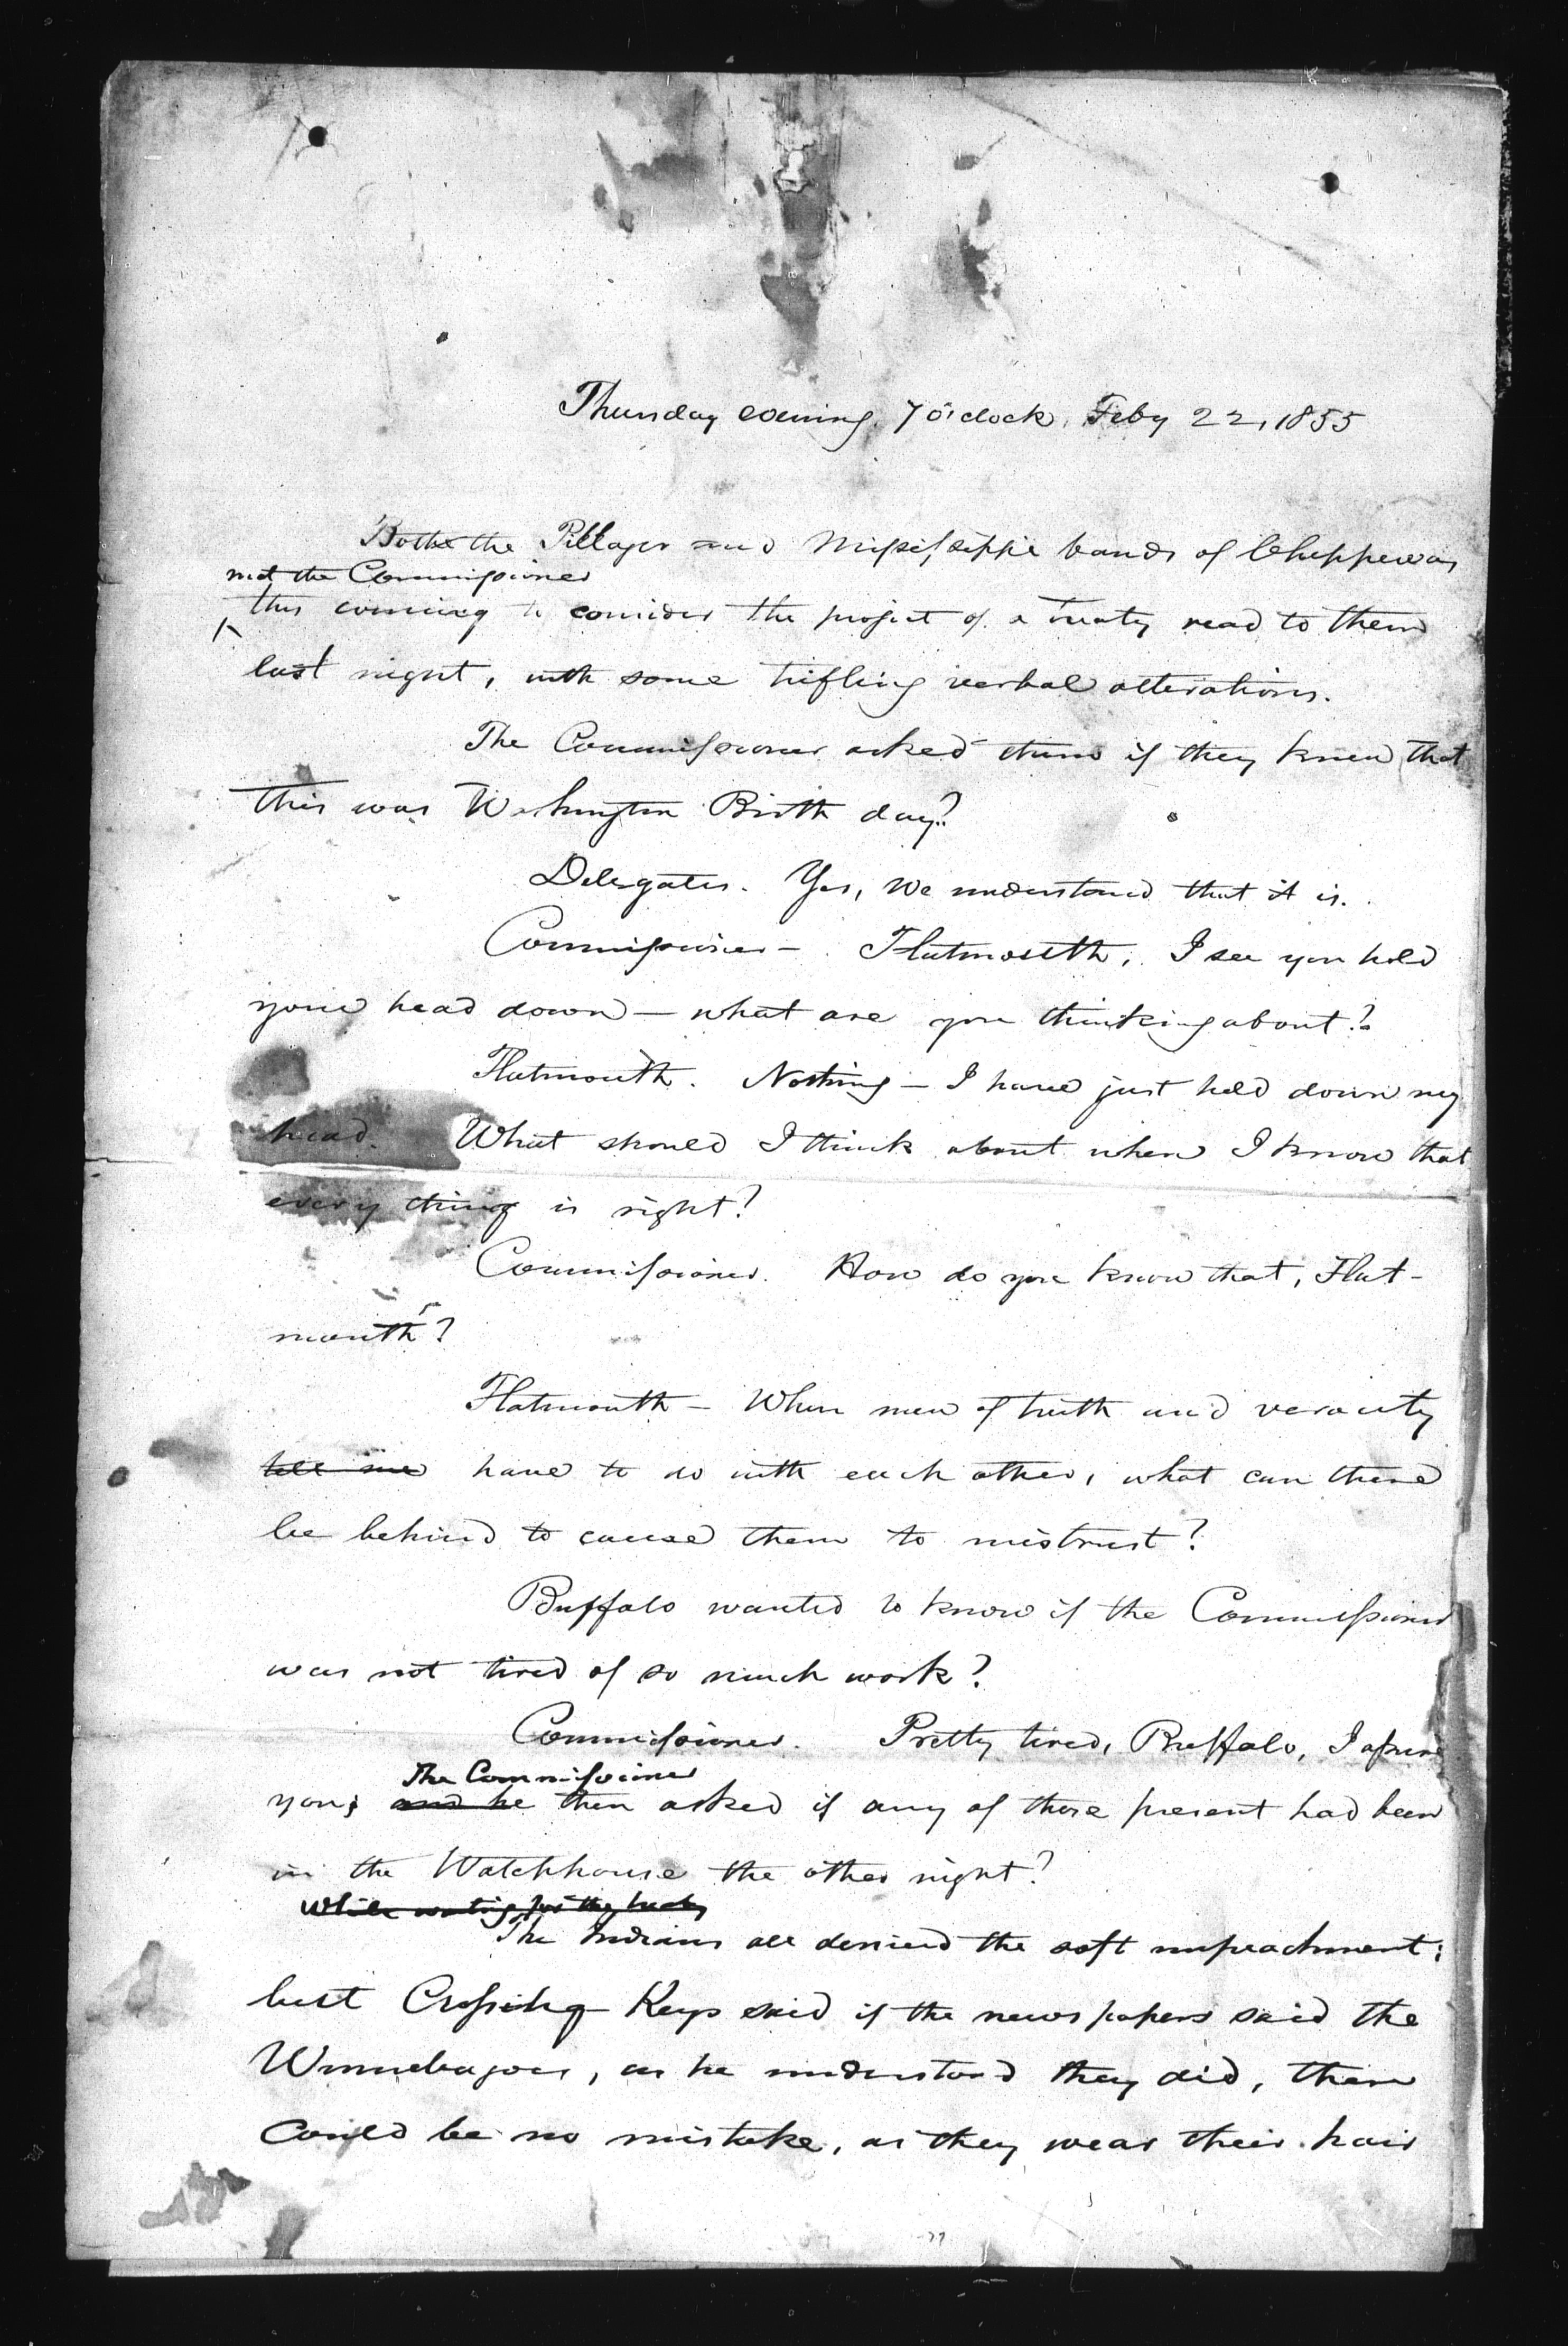 Thursday evening, 7 o'clock, Feby 22, 1855
Both the Pillager and Mississippi bands of Chippewas
met the Commissioner
this evening to consider the project of a treaty read to them
last night, with some trifling verbal alterations.
The Commissioner asked them if they knew that
this was Washington Birth day?
Delegates. Yes, we understand that it is.
Commissioner - Flatmouth, I see you hold
your head down — what are you thinking about?
Flatmouth. Nothing — I have just held down my
head. What should I think about when I know that
every thing is right?
Commissioner. How do you know that, Flat-
mouth?
Flatmouth — When men of truth and veracity
tell me have to do with each other, what can there
be behind to cause them to mistrust?
Buffalo wanted to know if the Commissioner
was not tired of so much work?
Commissioner. Pretty tired, Buffalo, I assure
The Commissioner
you; and he then asked if any of those present had been
in the Watchhouse the other night?
While waiting for the
The Indians all denied the soft impeachment;
but Crossing Keys said if the newspapers said the
Winnebagoes, as he understood they did, there
could be no mistake, as they wear their hair